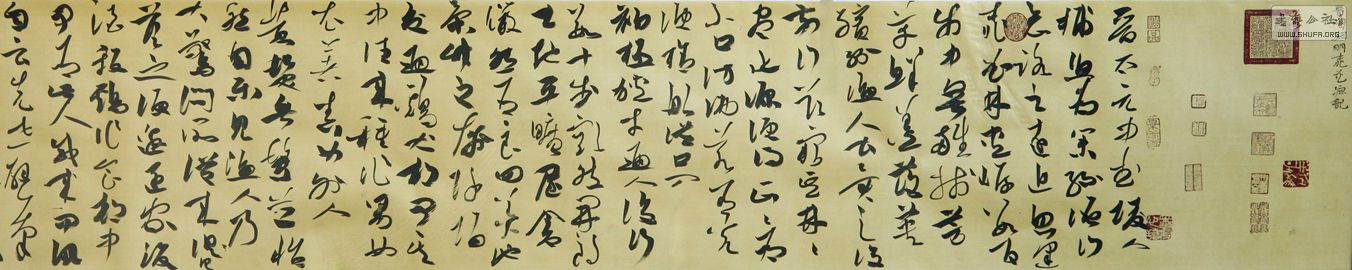 明桃花源記
晉太元中武陵人
捕魚為業緣溪行
忘路之遠近忽逢
桃花林夾岸數百
步中無雜樹芳
草鮮美落英
繽紛漁人甚異之復
前行欲窮其林〻
盡水源便得山〻有
小口彷彿若有光
便捨船從口入
初極狹才通人復行
數十步豁然開朗
土地平曠屋舍
儼然有良田美池
桑竹之屬阡陌
交通雞犬相聞其
中往來種作男女
衣著悉如外人
黃髮垂髫並怡
然自樂見漁人乃
大驚問所從來具
答之便邀還家設
酒殺雞作食村中
聞有此人咸來問訊
自云先世避秦
WWW.SHUFA.ORG